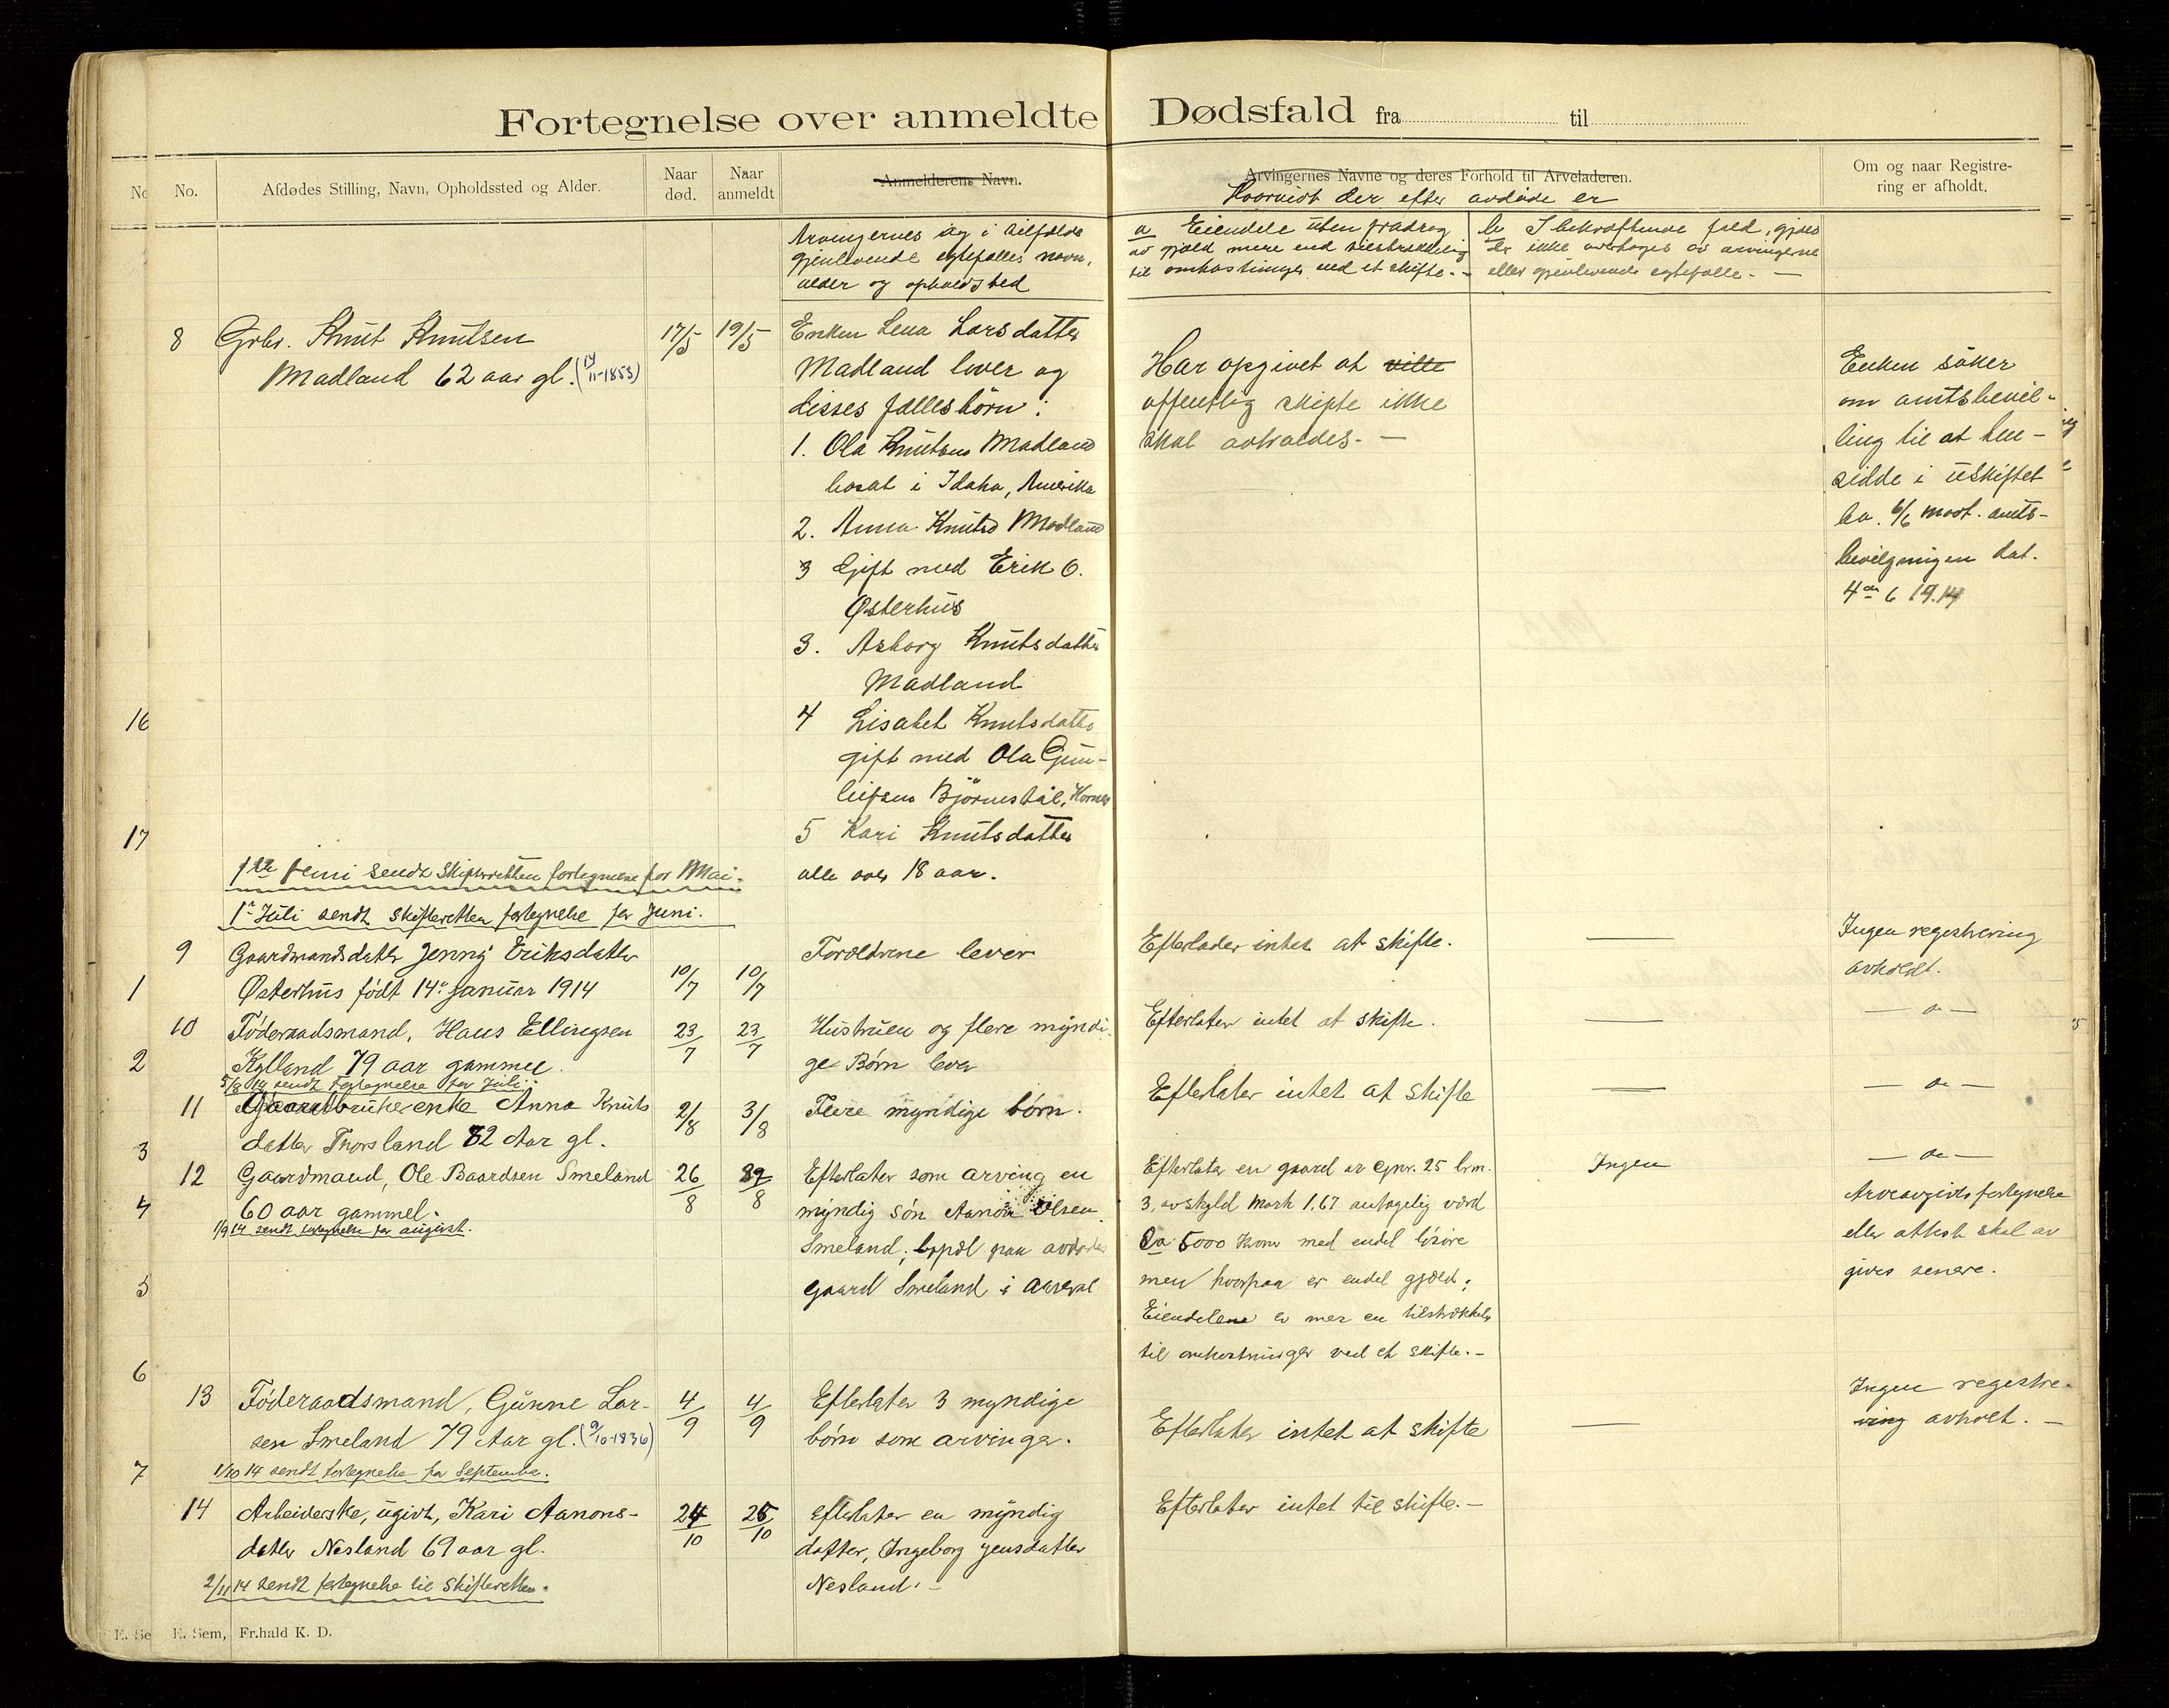 Fortegnelse over anmeldte Dødsfald fra til
No.
Afdødes Stilling, Navn, Opholdssted og Alder.
Naar død.
Naar anmeldt
Anmelderens Navn.
Arvingernes Navne og deres Forhold til Arveladeren.
Hvorvidt der efter avdøde er
Om og naar Registrering er afholdt.
Arvingernes og i tilfælde
gjenlevende egtefælles navn,
alder og opholdsted
a Eiendele uten fradrag
av gjæld mere end tilstrækkelig
til omkostninger ved et skifte. -
b I bekræftende fald, gjæld
der ikke overtages av arvingerne
eller gjenlevende egtefælle. -
8 Gbr. Knut Knutsen
Madland 62 aar gl. (14/11-1853)
17/5
19/5
Enken Lena Larsdatter
Madland lever og
disses fællesbörn:
1. Ola Knutsen Madland
bosat i Idaho, Amerika
2. Anna Knutsd Madland
3 Gift med Erik O.
Østerhus
3. Asborg Knutsdatter
Madland
4 Lisabet Knutsdatter
gift med Ola Gun-
leifsen Björnestöl, Hornes
5 Kari Knutsdatter
alle over 18 aar.
Har opgivet at vilde
offentlig skifte ikke
skal avholdes. -
Enken söker
om amtsbevil-
ling til at hen-
sidde i uskiftet
bo. 6/6 mot. amts-
bevilgningen dat.
4de 6 1914
16
17
1ste juni sendt Skifteretten fortegnelse for Mai.
1. Juli sendt skifteretten fortegnelse for Juni.
9 Gaardmandsdatter Jenny Eriksdatter
Østerhus født 14. Januar 1914
10/7
10/7
Forældrene lever
Efterlader intet at skifte.
Ingen regestrering
avholdt.
1
10 Föderaadsmand, Hans Ellingsen
Kylland 79 aar gammel.
23/7
23/7
Hustruen og flere myndi-
ge Børn lever
Efterlater intet at skifte.
- do -
2
5/8 14 sendt fortegnelse for Juli.
11 Gaardbrukerenke Anna Knuts
datter Thorsland 82 Aar gl.
2/8
3/8
Flere myndige børn.
Efterlater intet at skifte
- do -
3
12 Gaardmand, Ole Baardsen Smeland
60 aar gammel.
26/8
Efterlater som arving en
myndig sön Aanon Olsen
Smeland, bopæl paa avdødes
gaard Smeland i Aaseral
Efterlater en gaard av gnr. 25 brn.
3, av skyld mark 1.67 antagelig værd
Ca 5000 Kroner med endel lösöre
men hvorpaa er endel gjæld;
Eiendelene er mer en tilstrækkelig
til omkostninger ved et skifte. -
Ingen
- do -
Arveavgivts fortegnelse
eller attest skal av
gives senere.
4
1/9 14 sendt fortegnelse for august.
5
6
13 Föderaadsmand, Gunne Lar-
sen Smeland 79 Aar gl. (9/10-1836)
4/9
4/9
Efterlater 3 myndige
børn som arvinger.
Efterlater intet at skifte
Ingen regestre-
ring avholt. -
7
1/10 14 sendt fortegnelse for September.
14 Arbeiderske, ugivt, Kari Aanons-
datter Nesland 69 aar gl.
24/10
26/10
efterlater en myndig
datter, Ingeborg Jensdatter
Nesland. -
Efterlater intet til skifte. -
2/11 14 sendt fortegnelse til Skifteretten.
E. Se
E. Sem, Fr.hald K. D.